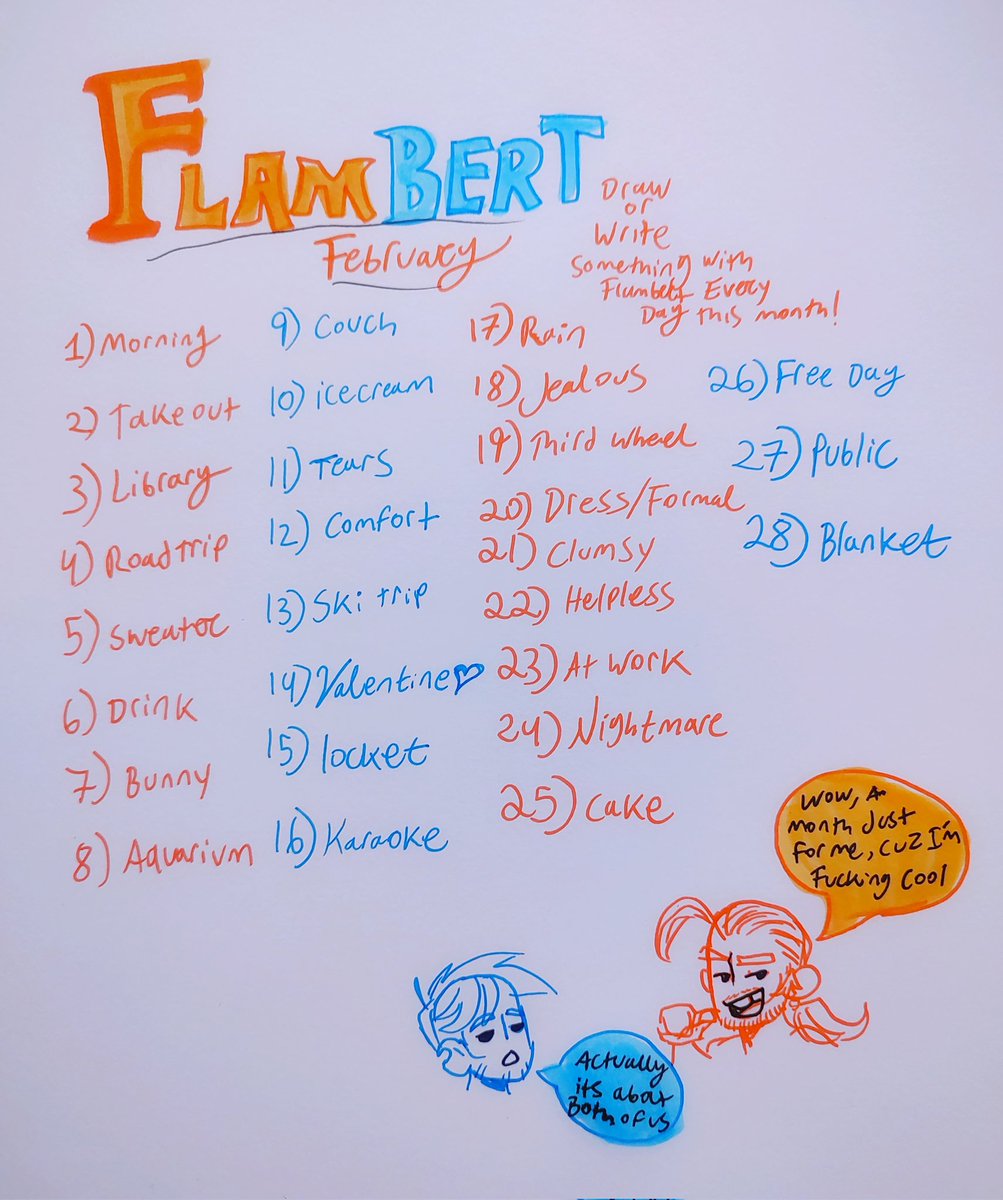 FLAMBERT
February
Draw
or
Write
Something with
Flambert Every
Day this month!
1) Morning
2) Takeout
3) Library
4) Roadtrip
5) Sweater
6) Drink
7) Bunny
8) Aquarium
9) Couch
10) icecream
11) Tears
12) Comfort
13) Ski trip
14) Valentine♡
15) locket
16) Karaoke
17) Rain
18) Jealous
19) Third wheel
20) Dress/Formal
21) Clumsy
22) Helpless
23) At work
24) Nightmare
25) Cake
26) Free Day
27) Public
28) Blanket
Wow, A
month Just
for me, cuz I'm
Fucking Cool
Actually
its abat
Both of us